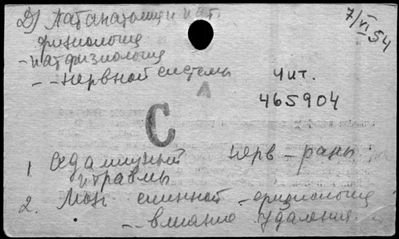 Д) Патанатомия и пат.
физиология
- патфизиология
- - нервной системы
7/VI 54
Чит.
465904
С
1. Седалищный нерв - раны
и травмы
2. Мозг спинной - физиология
- - влияние удаления